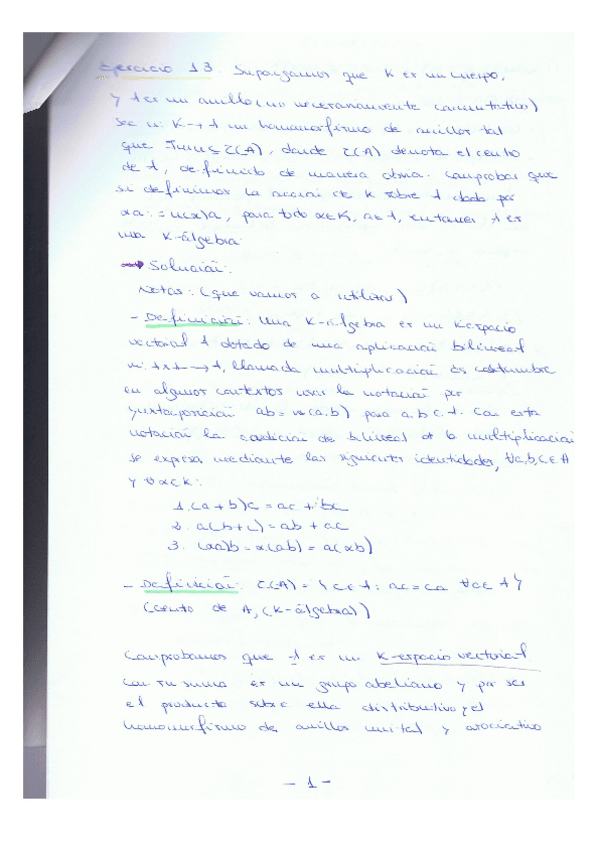 Ejercicio 13. Supongamos que K es un cuerpo,
y A es un anillo (no necesariamente conmutativo)
sea u: K → A un homomorfismo de anillos tal
que Im u ⊆ Z(A), donde Z(A) denota el centro
de A, definido de manera obvia. Comprobar que
si definimos la acción de K sobre A dada por
αa := u(α)a, para todo α∈K, a∈A, entonces A es
una K-álgebra.
Solución:
Notas: (que vamos a utilizar)
- Definición: Una K-álgebra es un K espacio
vectorial A dotado de una aplicación bilineal
m: A×A → A, llamada multiplicación es costumbre
en algunos contextos usar la notación por
yuxtaposición ab = m(a,b) para a,b ∈ A. Con esta
notación la condición de bilineal de la multiplicación
se expresa mediante las siguientes identidades, ∀a,b,c∈A
y ∀α∈K:
1. (a+b)c = ac + bc
2. a(b+c) = ab + ac
3. (αa)b = α(ab) = a(αb)
- Definición: Z(A) = {c∈A: ac=ca ∀a∈A}
(centro de A, (K-álgebra))
Comprobamos que A es un K-espacio vectorial
con su suma es un grupo abeliano y por ser
el producto sobre ella distributivo y el
homomorfismo de anillos unital y asociativo
- 1 -